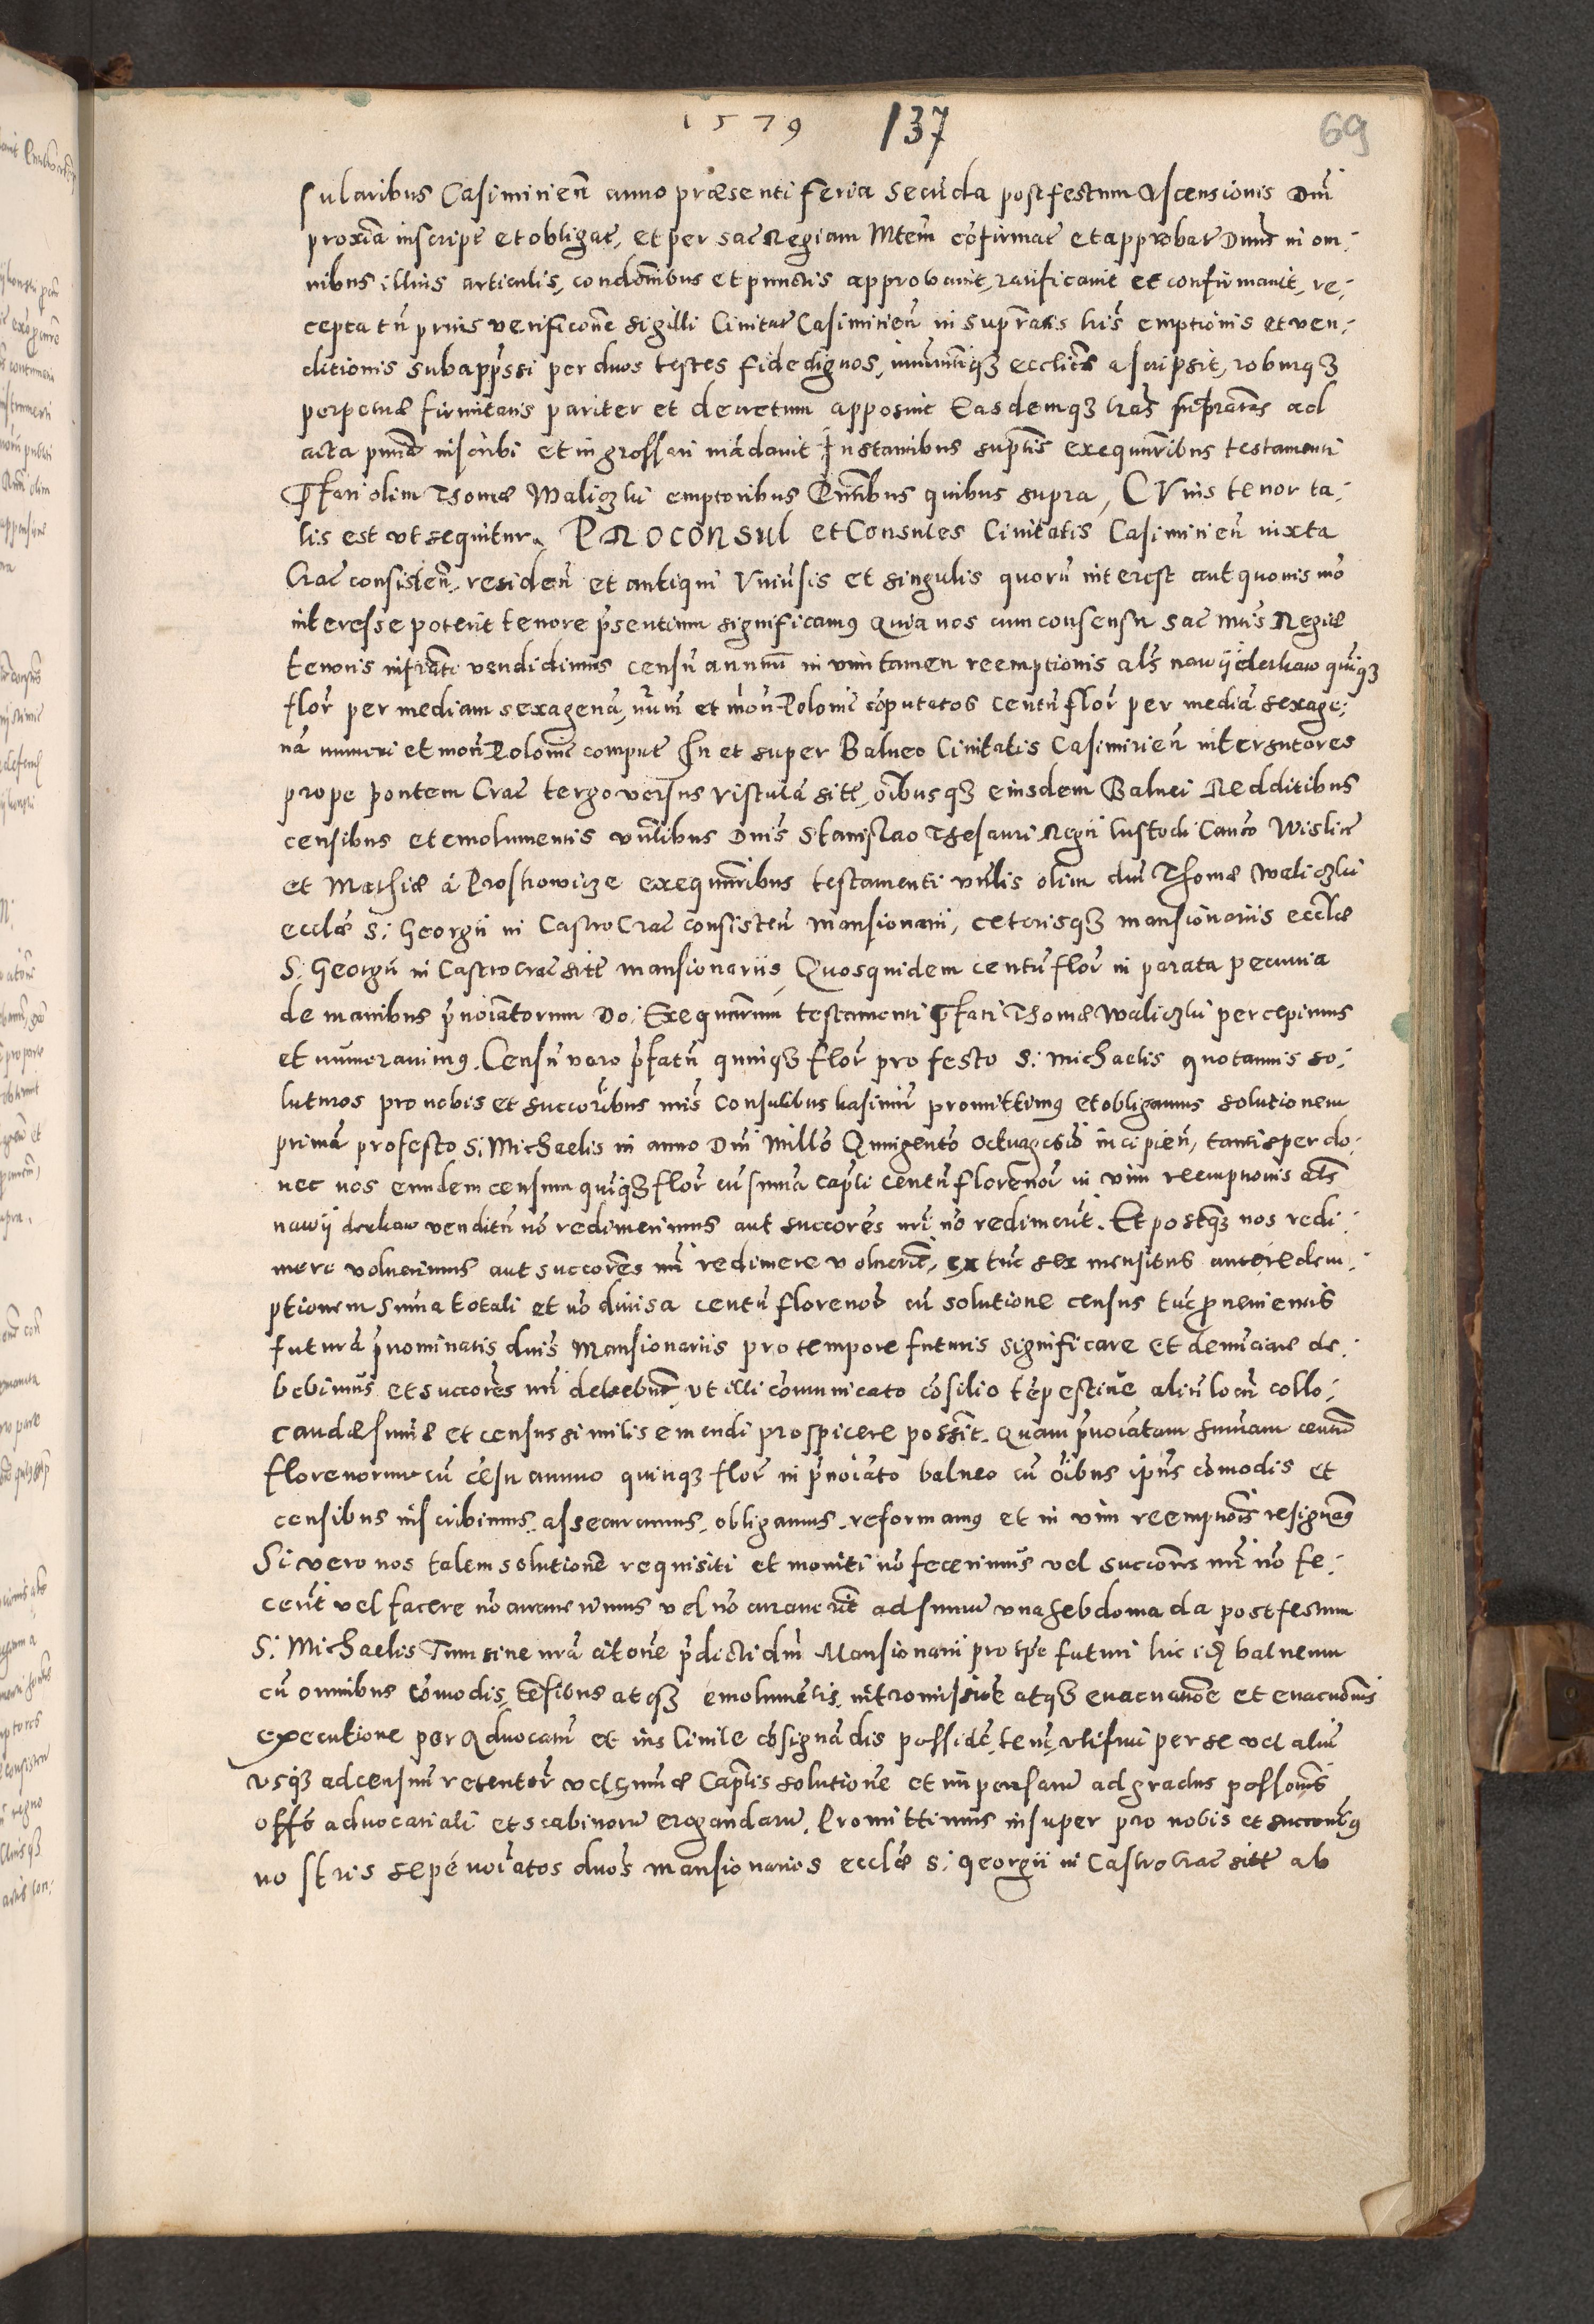 1579 137 69
sularibus Casimirien̄ anno præsenti feria Secūda post festum Ascensionis Dn̄i
proxīa inscript̄ et obligat̄, et per sac̄ Regiam Mtem̄ cōfirmat̄ et approbat̄ Dn̄us in om:
nibus illius articulis, condōnibus et punctis approbavit, ratificavit et confirmavit, re:
cepta tn̄ prius verificōne sigilli Civitat̄ Casimirien̄ in supratis lr̄is emptionis et ven:
ditionis subapp̄ssi per duos testes fidedignos, ecclic̄ ascripsit, roburqꝫ
perpetuæ firmitatis pariter et decretum apposuit Easdemqꝫ lr̄as supratas ad
acta inscribi et ingrossari mādavit Instantibus suptis exequtoribus testamenti
p̄fati olim Thomæ Waliczki emptoribus quibus supra, CVius tenor ta:
lis est vt sequitur. PROCONSUL et Consules Civitatis Casimirien̄ iuxta
Crac̄ consisten̄, residen̄ et antiqui Vniūsis et singulis quorū interest aut quovis mō
interesse poterit tenore p̄sentium significamꝰ Quia nos cum consensu Sac̄ Mtis Regiæ
tenoris infrati vendidimus censū annuū in vim tamen reemptionis als̄ nawÿderkaw quīqꝫ
flor̄ per mediam sexagenā, nūm̄ et mon̄ Polonic̄ cōputatos Centū flor̄ per mediā sexage:
nā numeri et mon̄ Polonic̄ comput̄ In et super Balneo Civitatis Casimirien̄ inter sutores
prope pontem Crac̄ tergo versus vistulā sitt̄, oībusqꝫ eiusdem Balnei Redditibus
censibus et emolumentis Dn̄is Stanislao Thesauri Regii Custodi Can̄co Wislic̄
et Mathiæ á Prostrowicze exequtoribus testamenti olim dn̄i Thomæ Waliczki
eccl̄æ S: Georgii in Castro Crac̄ consisten̄ Mansionarii, ceterisqꝫ mansionariis eccl̄æ
S: Georgii in Castro Crac̄ sitt̄ mansionariis, Quos quidem centū flor̄ in parata pecunia
de manibus p̄noīatorum Do: Exequtorum testamenti p̄fati Thomæ Waliczki percepimus
et numeravimꝰ. Censū vero p̄fatū quinqꝫ flor̄ pro festo S: Michaelis quotannis so:
luturos pro nobis et succoribus nr̄is Consulibus kasimir̄ promittimꝰ et obligamus solutionem
primā pro festo S: Michaelis in anno Dn̄i Millō Quingentō octuagesiō incipien̄, tantisper do:
nec nos eundem censum quīqꝫ flor̄ cū sum̄a capt̄li centū florenor̄ in vim reemptionis als̄
nawÿ derkaw venditū nō redimerimus aut succores nr̄i nō redimerīt. Et postqꝫ nos redi:
mere voluerimus aut succores nr̄i redimere voluerīt, ex tūc sex mensibus ante redem:
ptionem Sum̄a totali et nō divisa centū florenor̄ cū solutione census tūc p̄venientis
futurā p̄nominatis dn̄is Mansionariis pro tempore futuris significare et denūciare de:
bebimus et succores nr̄i debebūt, vt illi cōmunicato cōsilio tēpestive aliū locū collo:
candæ sum̄æ et census similis emendi prospicere possint. Quam p̄noīatam sum̄am centū
florenorum cū cēsu annuo quinqꝫ flor̄ in p̄noīato balneo cū oībus ipsius cōmodis et
censibus inscribimus, assecuramus, obligamus, reformamꝰ et in vim reemptiōis resignamꝰ
Si vero nos talem solutionē requisiti et moniti nō fecerimus vel succores nr̄i nō fe:
cerīt vel facere nō curaverimus vel nō curaverīt ad sum̄u vna hebdomada post festum
S: Michaelis Tum sine nr̄a citōne p̄dicti dn̄i Mansionarii pro tp̄e futuri balneum
cū omnibus cōmodis, cēsibus atqꝫ emolumētis, intromissione atqꝫ evacuatōne et evacuōnis
executione per Advocatū et ius Civile cōsignādis possidē, ten̄, vti frui per se vel aliū
vsqꝫ ad censum retentor̄ vel sum̄æ Capt̄lis solutionē et impensarū ad gradus possōnis
offō advocatiali et scabinorū erogandarū. Promittimus insuper pro nobis et succoribꝰ
nostris sepē noīatos dnos mansionarios eccl̄æ S: Georgii in Castro Crac̄ sitt̄ ab